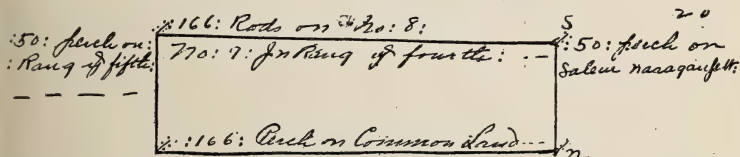 :166: Rods on No: 8:
S
20
:50: perch on:
: Rang ye fifth:
No: 7: In Rang ye fourth:
:50: perch on
Salem naragansett:
:166: Perch on Common Land
n